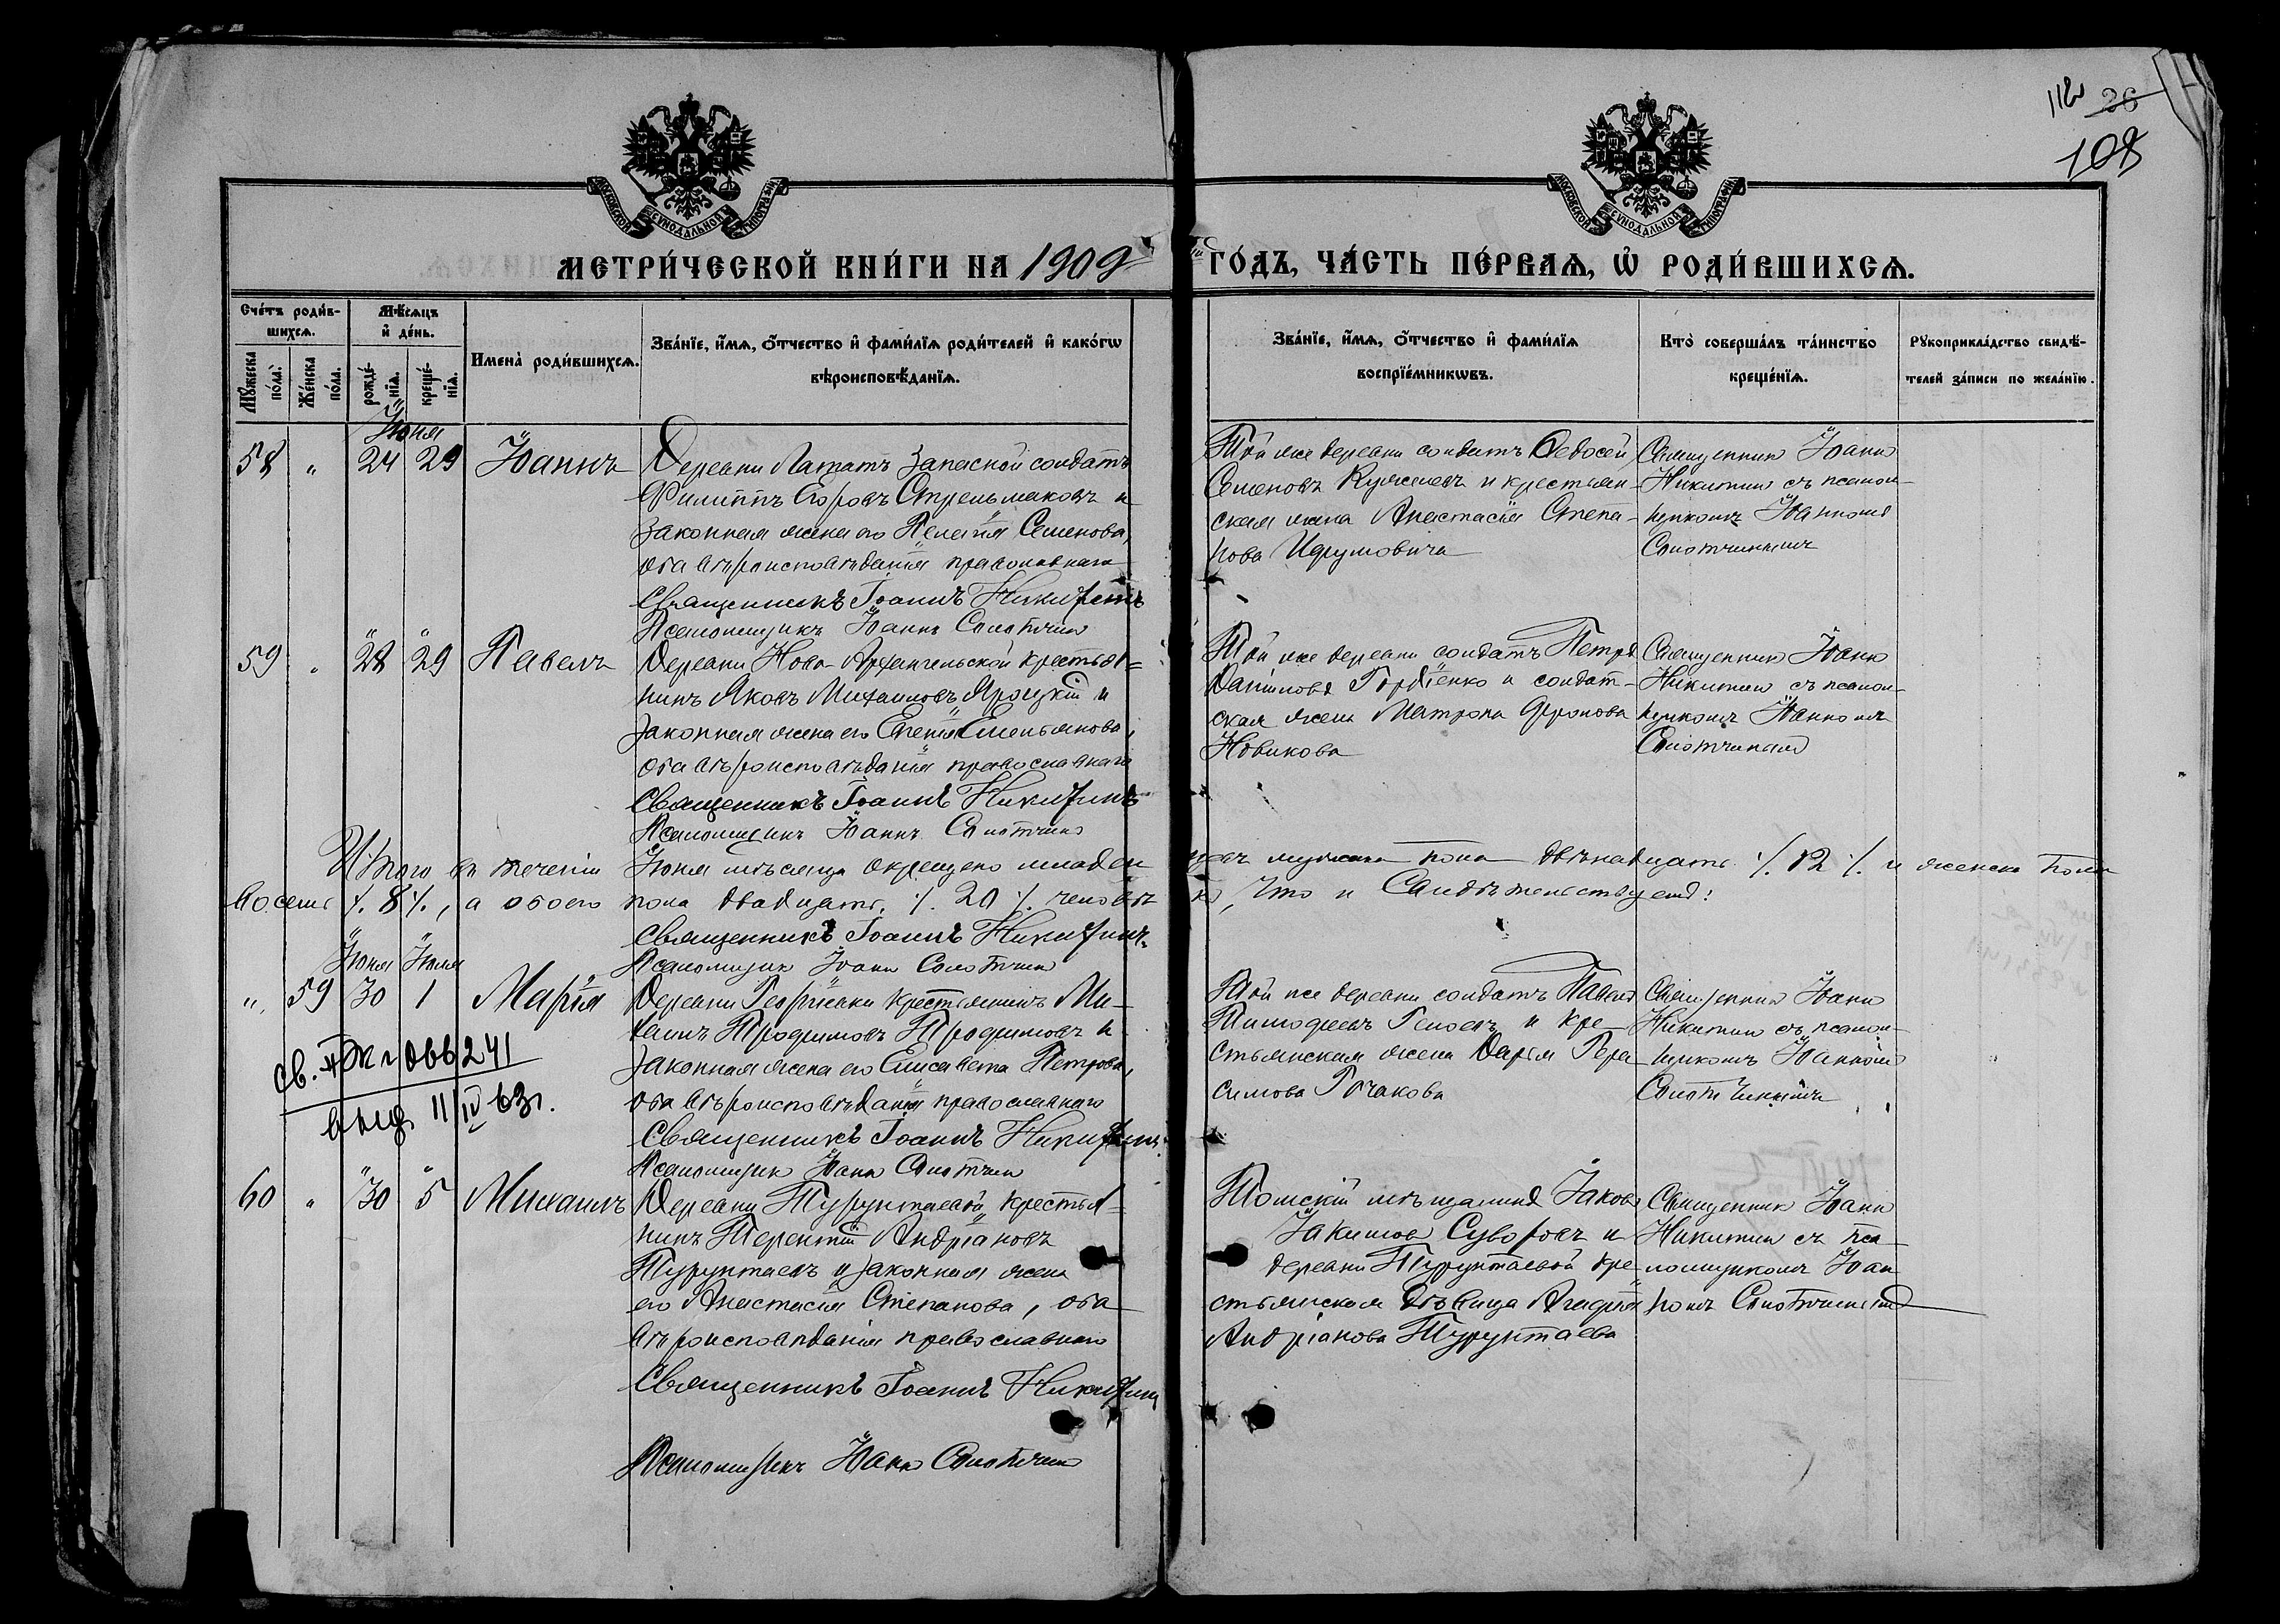 26
108
МОСКОВСКОЙ СѴНОДАЛЬНОЙ ТИПОГРАФІИ
МОСКОВСКОЙ СѴНОДАЛЬНОЙ ТИПОГРАФІИ
МЕТРИ́ЧЕСКОЙ КНИ́ГИ НА 1909 ГО́ДЪ, ЧА́СТЬ ПЕ́РВАѦ, Ѡ҆ РОДИ́ВШИХСѦ.
Сче́тъ роди́в-
шихсѧ.
Мꙋ́жеска по́ла.
Же́нска по́ла.
Мѣ́сѧцъ
и҆ де́нь.
рожде́-
нїѧ.
креще́-
нїѧ.
Имена̀ роди́вшихсѧ.
Зва́нїе, и҆́мѧ, ѻ҆́тчество и҆ фами́лїѧ роди́телей и҆ како́гѡ
вѣроисповѣ́данїѧ.
Зва́нїе, и҆́мѧ, ѻ҆́тчество и҆ фами́лїѧ
воспрїе́мникѡвъ.
Кто̀ соверша́лъ та́инство
креще́нїѧ.
Рꙋкоприкла́дство свидѣ́-
телей за́писи по жела́нїю.
Іюня
58 " 24 29 Іоаннъ
Деревни Лататъ запасной солдатъ
Филиппъ Егоровъ Стрельмаковъ и
законная жена его Пелагія Семенова,
оба вѣроисповѣданія православнаго
Священникъ Іоаннъ Никитинъ
Псаломщикъ Іоаннъ Слотчинъ
Той же деревни солдатъ Федосей
Семеновъ и крестьян-
ская жена Анастасія Степа-
нова
Священник Іоанн
Никитин съ псалом-
щикомъ Іоанномъ
59 " 28 29 Павелъ
Деревни Ново-Архангельской крестья=
нинъ Яковъ Михаиловъ Яроцкій и
законная жена его Елена Емельянова,
оба вѣроисповѣданія православнаго
Священникъ Іоаннъ Никитинъ
Псаломщикъ Іоаннъ
Той же деревни солдатъ Петръ
Даниловъ Гордіенко и солдат-
ская жена Матрона
Новикова
Священник Іоанн
Никитин съ псалом-
щикомъ Іоанномъ
Итого въ теченіи Іюня мѣсяца окрещено младен цевъ мужеска пола двѣнадцать ·/. 12 ·/. и женска пола
восемь ·/. 8 ·/., а обоего пола двадцать ·/. 20 ·/. человѣкъ, что и свидѣтельствуемъ:
Священникъ Іоаннъ Никитинъ
Псаломщик Іоанн
Іюня Іюля
" 59 30 1 Марія
Деревни Георгіевки крестьянинъ Ми-
хаилъ Трофимовъ Трофимовъ и
законная жена его Елисавета Петрова,
оба вѣроисповѣданія православнаго
Священникъ Іоаннъ Никитинъ
Псаломщик Іоанн
Той же деревни солдатъ Павелъ
Тимофеевъ и кре-
стьянская жена Дарья Гера
симова
Священник Іоанн
Никитин съ псалом-
щикомъ Іоанномъ
241
выд. 11/IV 63г.
60 " 30 5 Михаилъ
Деревни Турунтаевой крестья=
нинъ Терентій Андріановъ
Турунтаевъ и законная жена
его Анастасія Степанова, оба
вѣроисповѣданія православнаго
Священникъ Іоаннъ Никитинъ
Псаломщикъ Іоанн
Томскій мѣщанинъ Іаковъ
Іакимов Суворовъ и
деревни Турунтаевой кре-
стьянская дѣвица Агафія
Андріанова Турунтаева
Священник Іоанн
Никитин съ пса-
ломщикомъ Іоан
номъ